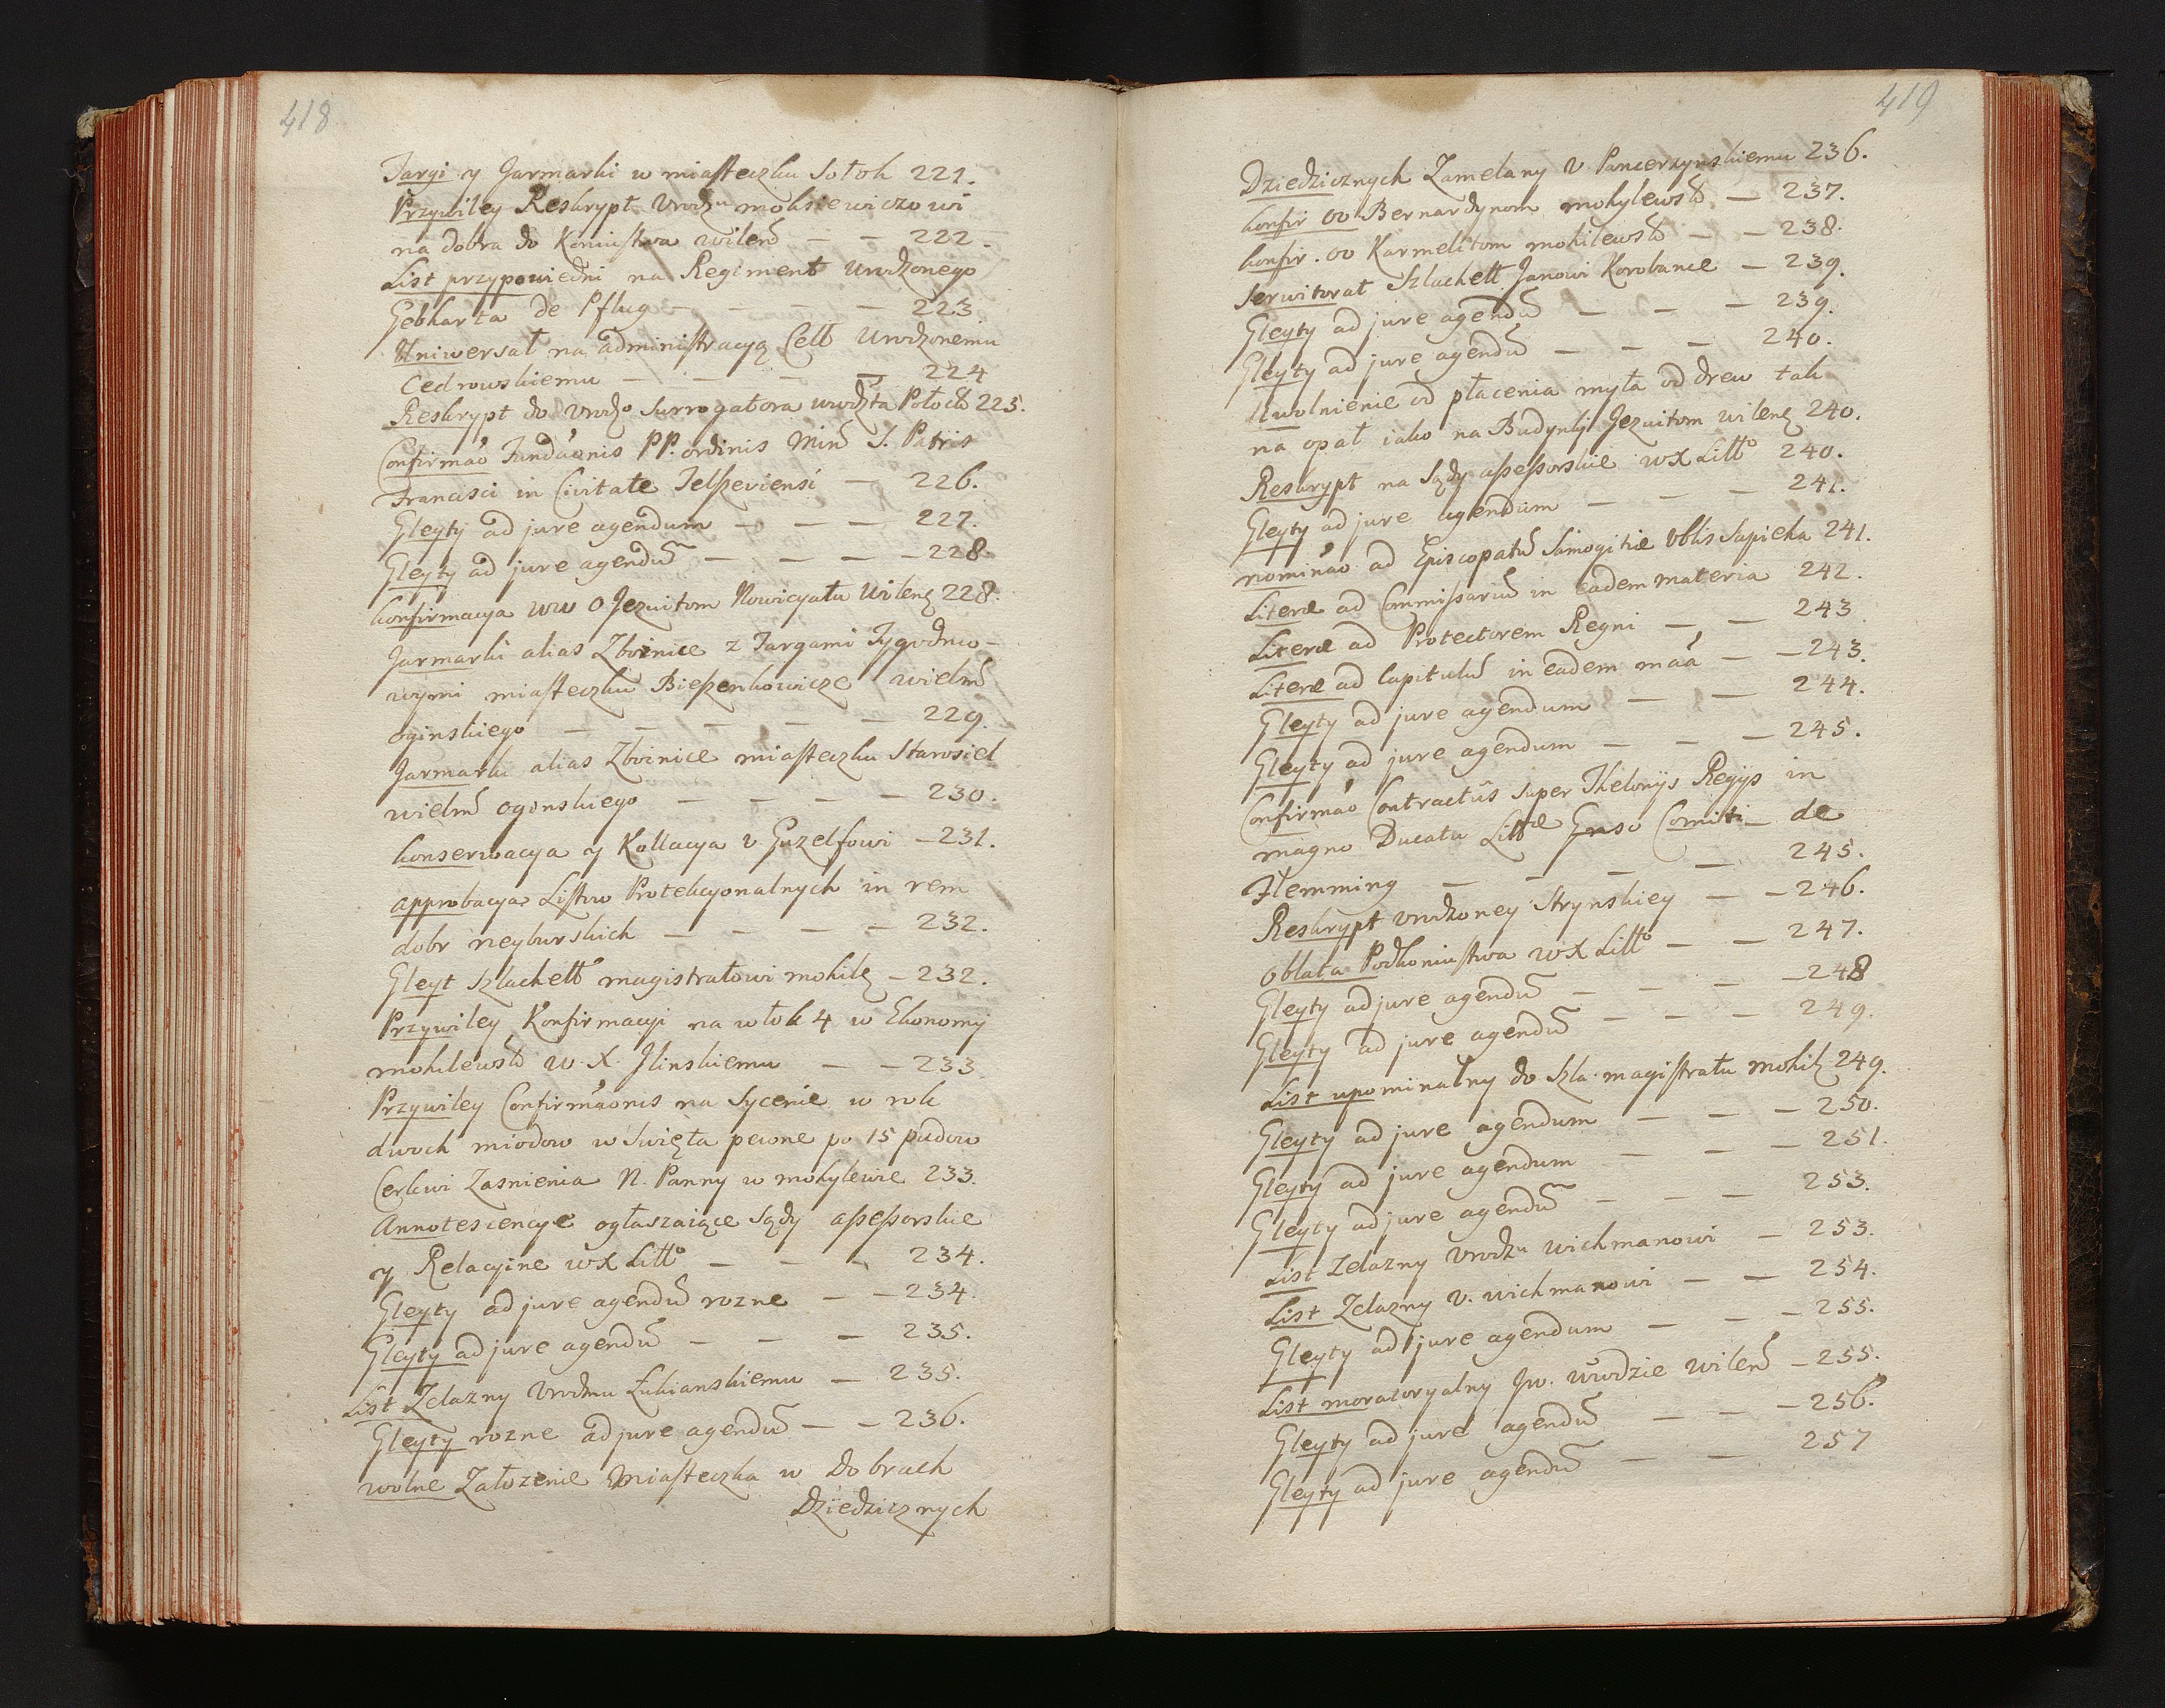 418
Targi y Jarmarki w miasteczku Sotok 221.
Przywiley Reskrypt Vrodzu moksiewiczowi
na dobra do Koniustwa wileń — — 222.
List przypowiedni na Regiment Urodzonego
Gebharta de Pflug — — — 223
Uniwersał na administracyą Cełł Urodzonemu
Cedrowskiemu — — — — 224
Reskrypt do Vrodzo Surrogatora wwdzta Połock 225.
Confirmao Fundaonis PP. ordinis Min S. Patris
Francisci in Civitate Telszeviensi — 226.
Gleyty ad jure agendum — — — 227.
Gleyty ad jure agendu — — — 228
konfirmacya ww O Jezuitom Nowicyatu Wilenz 228.
Jarmarki alias Zboinice z Targami Tygodnio-
wymi miasteczku Bieszenkowicze wielm
oginskiego — — — — — 229.
Jarmarki alias Zboinice miasteczku Starosiel
wielm oginskiego — — — — 230.
konserwacya y Kollacya v Guzelfowi — 231.
approbacya Listow Protekcyonalnych in rem
dobr neyburskich — — — — 232.
Gleyt szlachett magistratowi mohilz — 232.
Przywiley Konfirmacyi na włok 4 w Ekonomij
mohilewsk w. X. Jlinskiemu — — 233
Przywiley Confirmaonis na Sycenie w rok
dwoch miodow w Swięta pewne po 15 pudow
Cerkwi Zasnienia N. Panny w mohylewie 233.
Annotescencye ogłaszaiące Sądy assessorskie
y Relacyine wX Litto — — — 234.
Gleyty ad jure agendu rozne — — 234.
Gleyty ad jure agendu — — — 235.
List Zelazny Vrodmu Łukianskiemu — 235.
Gleyty rozne ad jure agendu — — 236.
wolne Załozenie miasteczka w Dobrach
Dziedzicznych
419
Dziedzicznych Zamelany V Pancerzynskiemu 236.
konfir OO Bernardynom mohylewsk — 237.
konfir. OO Karmelitom mohilewsk — — 238.
Serwitorat Szlachett Janowi Korobance — 239.
Gleyty ad jure agendu — — — 239.
Gleyty ad jure agendu — — — 240.
Uwolnienie od płacenia myta od drew tak
na opał iako na Budynki Jezuitom wilenz 240.
Reskrypt na Sądy assessorskie wX Litto 240.
Gleyty ad jure agendum — — — 241.
nominao ad Episcopatu Samogitiæ Vblis Sapieha 241.
Literæ ad Commissariu in eadem materia 242.
Literæ ad Protectorem Regni — — 243
Literæ ad Capitulu in eadem maa — — 243.
Gleyty ad jure agendum — — 244.
Gleyty ad jure agendum — — — 245.
Confirmao Contractus super Thelonijs Regijs in
magno Ducatu Littæ Gnso Comiti — de
Flemming — — — — 245.
Reskrypt vrodzoney Strynskiey — — 246.
Oblata Podkoniustwa wX Litto — — 247.
Gleyty ad jure agendu — — — 248
Gleyty ad jure agendu — — — 249.
List upominalny do szla. magistratu mohilz 249.
Gleyty ad jure agendum — — — 250.
Gleyty ad jure agendum — — — 251.
Gleyty ad jure agendu — — — 253.
List Zelazny Vrodzu wichmanowi — 253.
List Zelazny V. wichmanowi — — 254.
Gleyty ad jure agendum — — — 255.
List moratoryalny Jw. wwodzie wilen — 255.
Gleyty ad jure agendu — — — 256.
Gleyty ad jure agendu — — 257